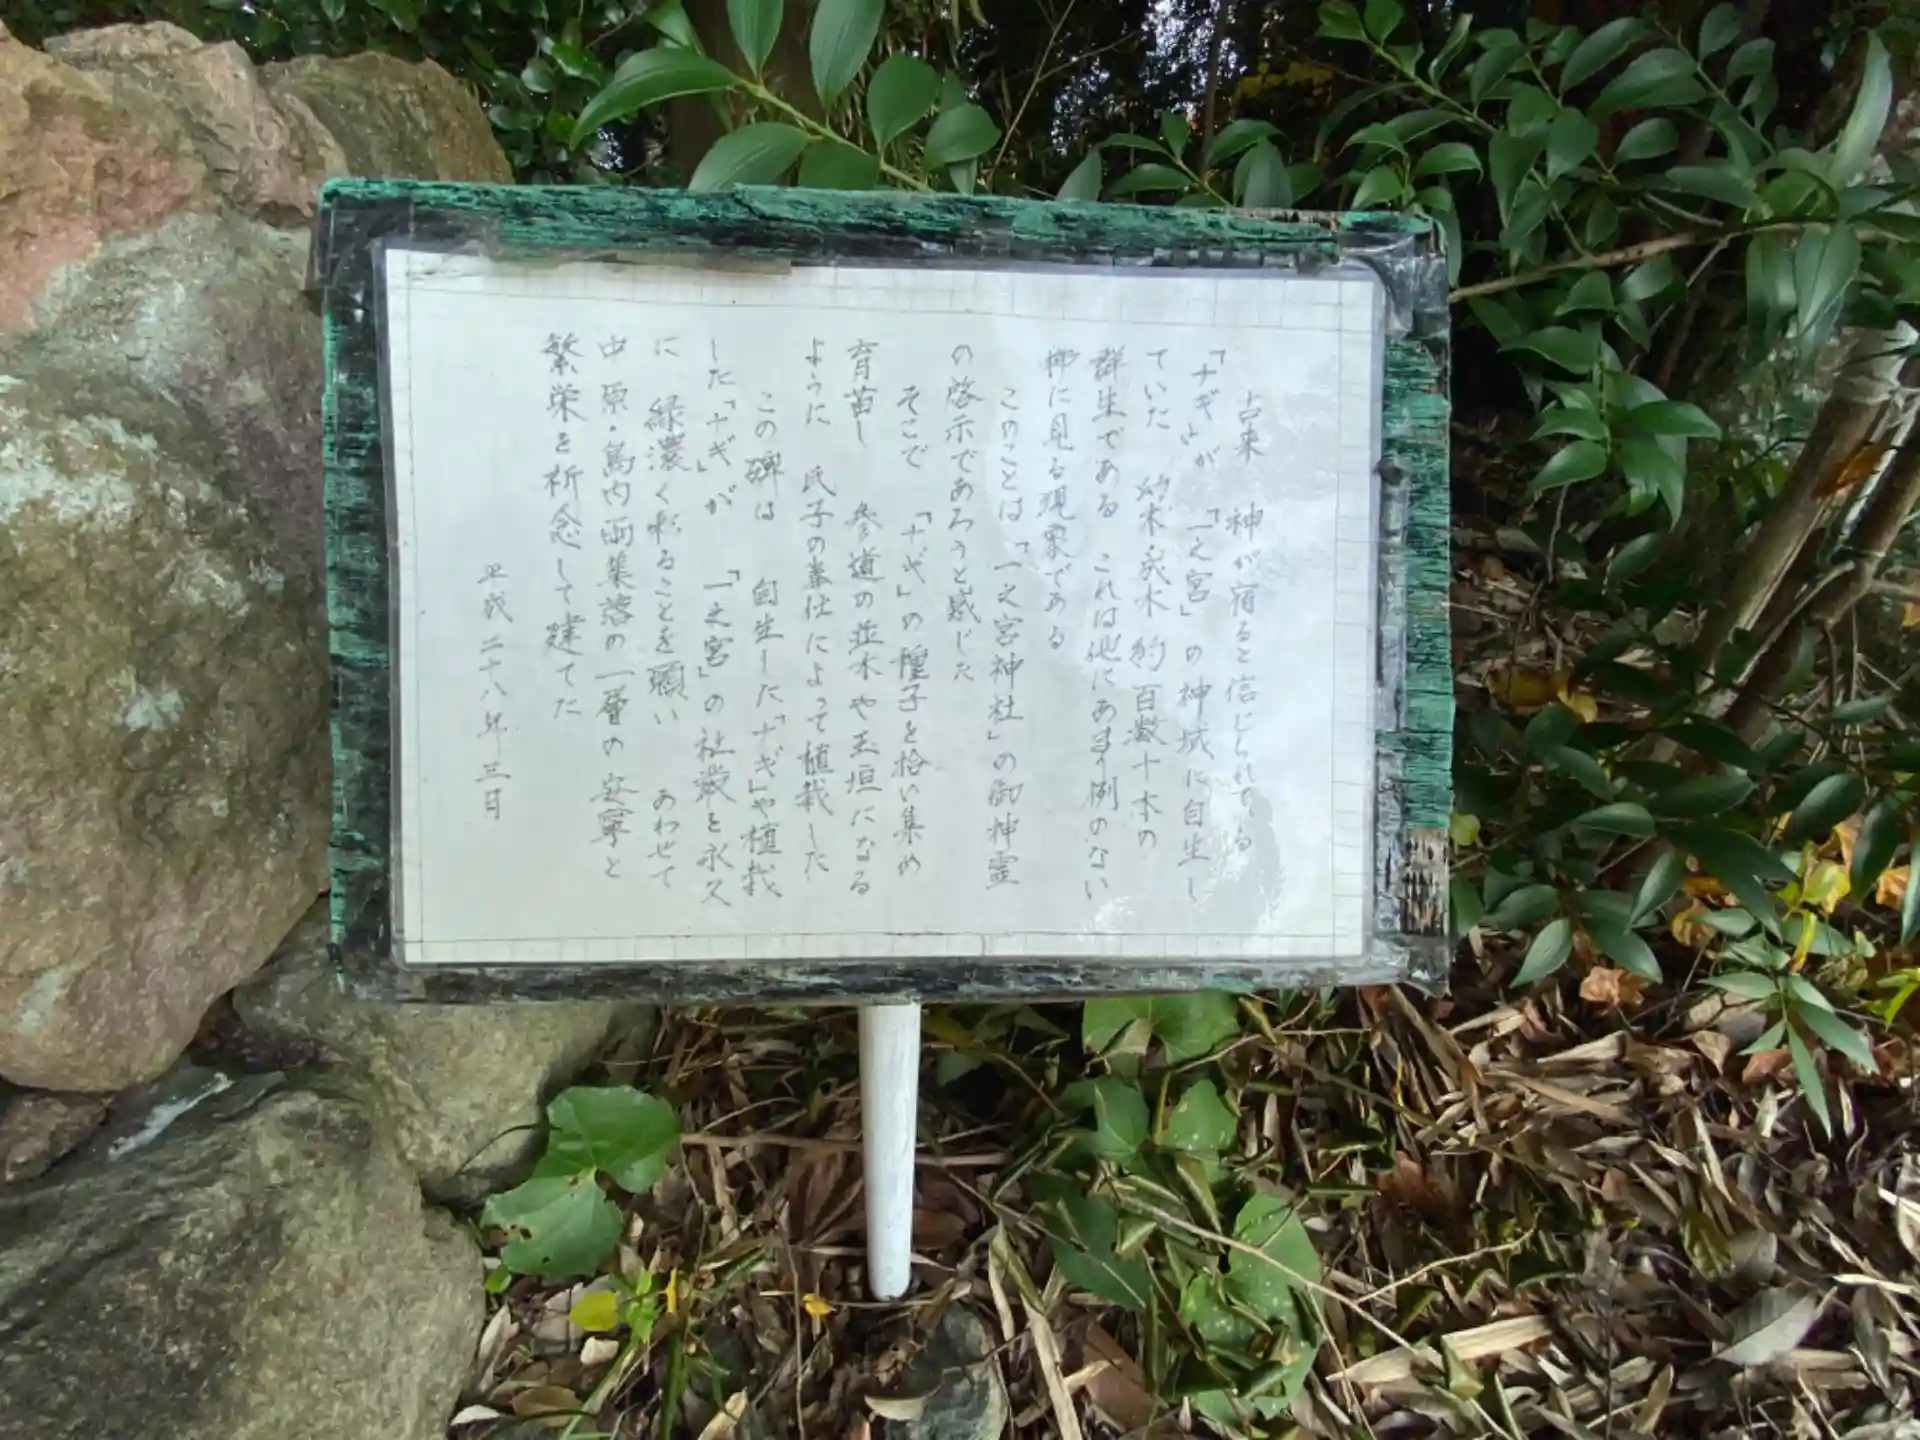 古来　神が宿ると信じられてる
「ナギ」が「一之宮」の神域に自生し
ていた　幼木成木約百数十本の
群生である　これは他にあまり例のない
稀に見る現象である
このことは「一之宮神社」の御神霊
の啓示であろうと感じた
そこで「ナギ」の種子を拾い集め
育苗し　参道の並木や玉垣になる
ように　氏子の奉仕によって植栽した
この碑は　自生した「ナギ」や植栽
した「ナギ」が「一之宮」の社叢を永久
に　緑濃く彩ることを願い　あわせて
中原・島内両集落の一層の安寧と
繁栄を祈念して建てた
平成二十八年三月